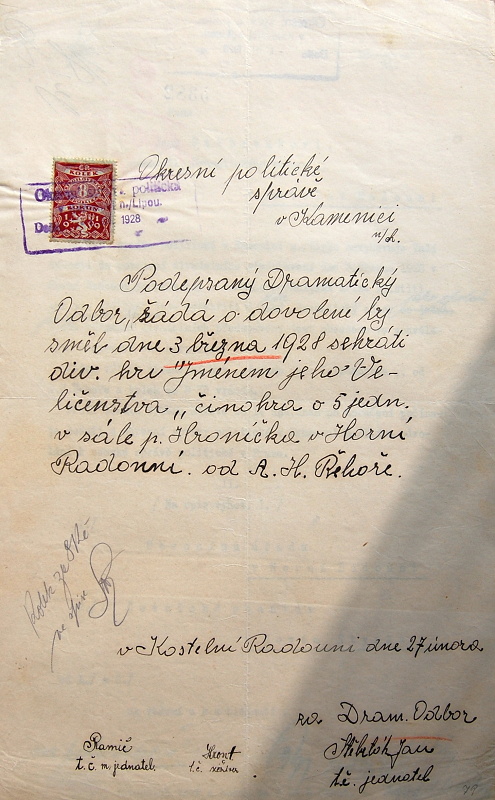 Okresní politické
správě
v Kamenici
n/L.
Č.S.
KOLEK
8
1928
n./Lipou.
politická
Podepsaný Dramatický
Odbor, žádá o dovolení by
směl dne 3 března 1928 sehráti
div. hru "Jménem jeho Ve-
ličenstva„ činohra o 5 jedn.
v sále p. Hroníčka v Horní
Radouni. od A. H. Řehoře.
v Kostelní Radouni dne 27 února
za Dram. Odbor
Jan
t.č. jednatel
t. č. m. jednatel.
t.č.